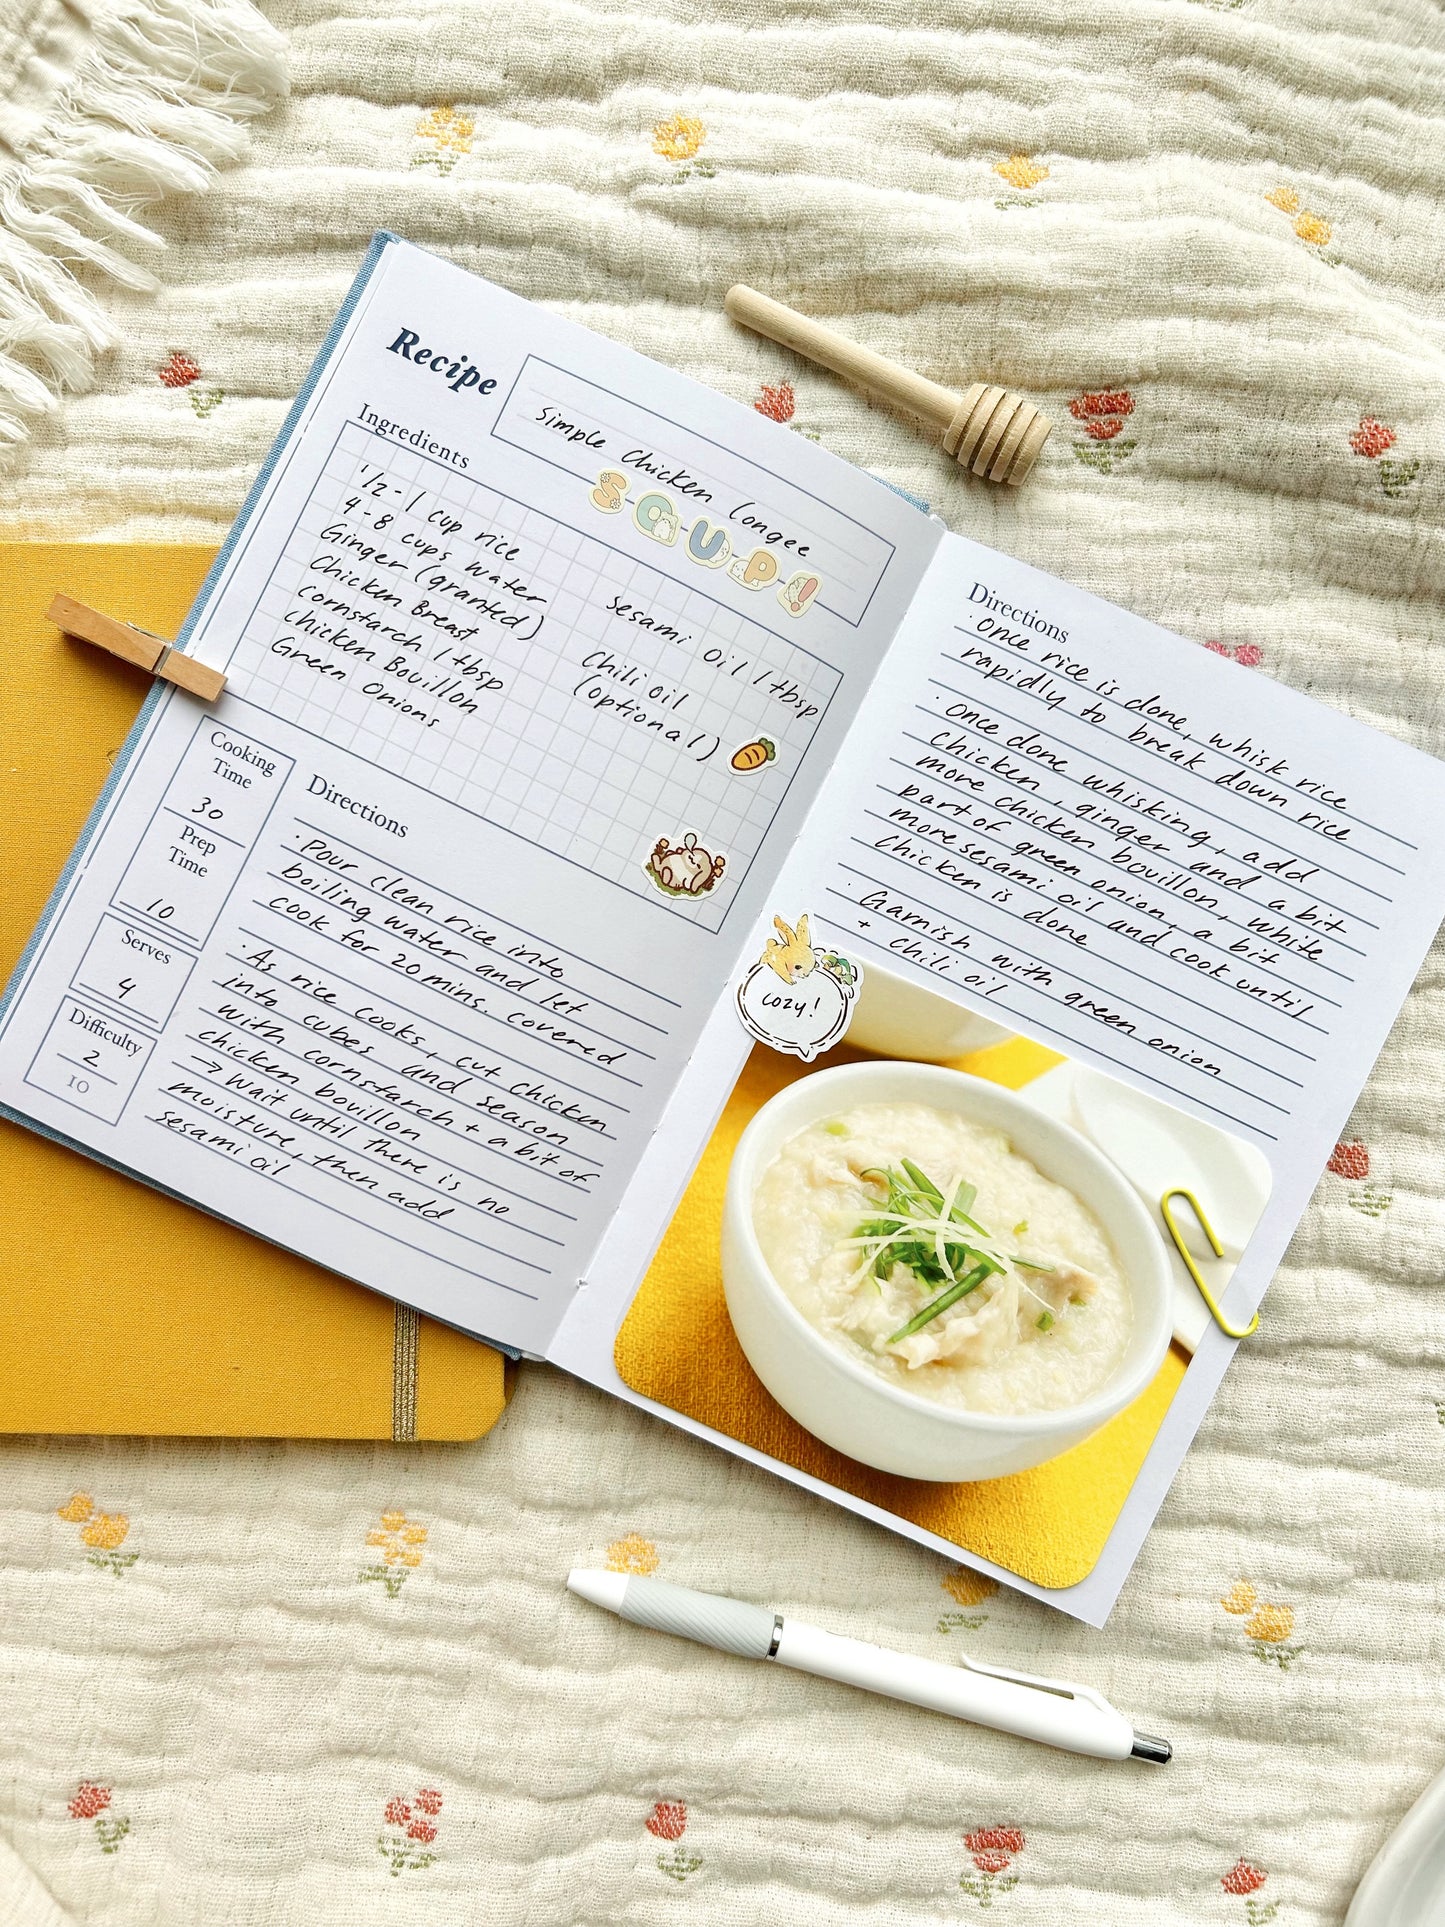 Recipe
Simple Chicken Congee
SOUP!
Ingredients
1/2 - 1 cup rice
4-8 cups water
Ginger (granted)
Chicken Breast
Cornstarch 1 tbsp
Chicken Bouillon
Green Onions
Sesami Oil 1 tbsp
Chili Oil
(optional)
Cooking
Time
30
Prep
Time
10
Serves
4
Difficulty
2
10
Directions
· Pour clean rice into
boiling water and let
cook for 20 mins. covered
· As rice cooks, cut chicken
into cubes and season
with cornstarch + a bit of
chicken bouillon
→ Wait until there is no
moisture, then add
sesami oil
Directions
· Once rice is done, whisk rice
rapidly to break down rice
· Once done whisking, add
Chicken, ginger and a bit
more chicken bouillon, white
part of green onion, a bit
more sesami oil and cook until
Chicken is done
· Garnish with green onion
+ chili oil
cozy!